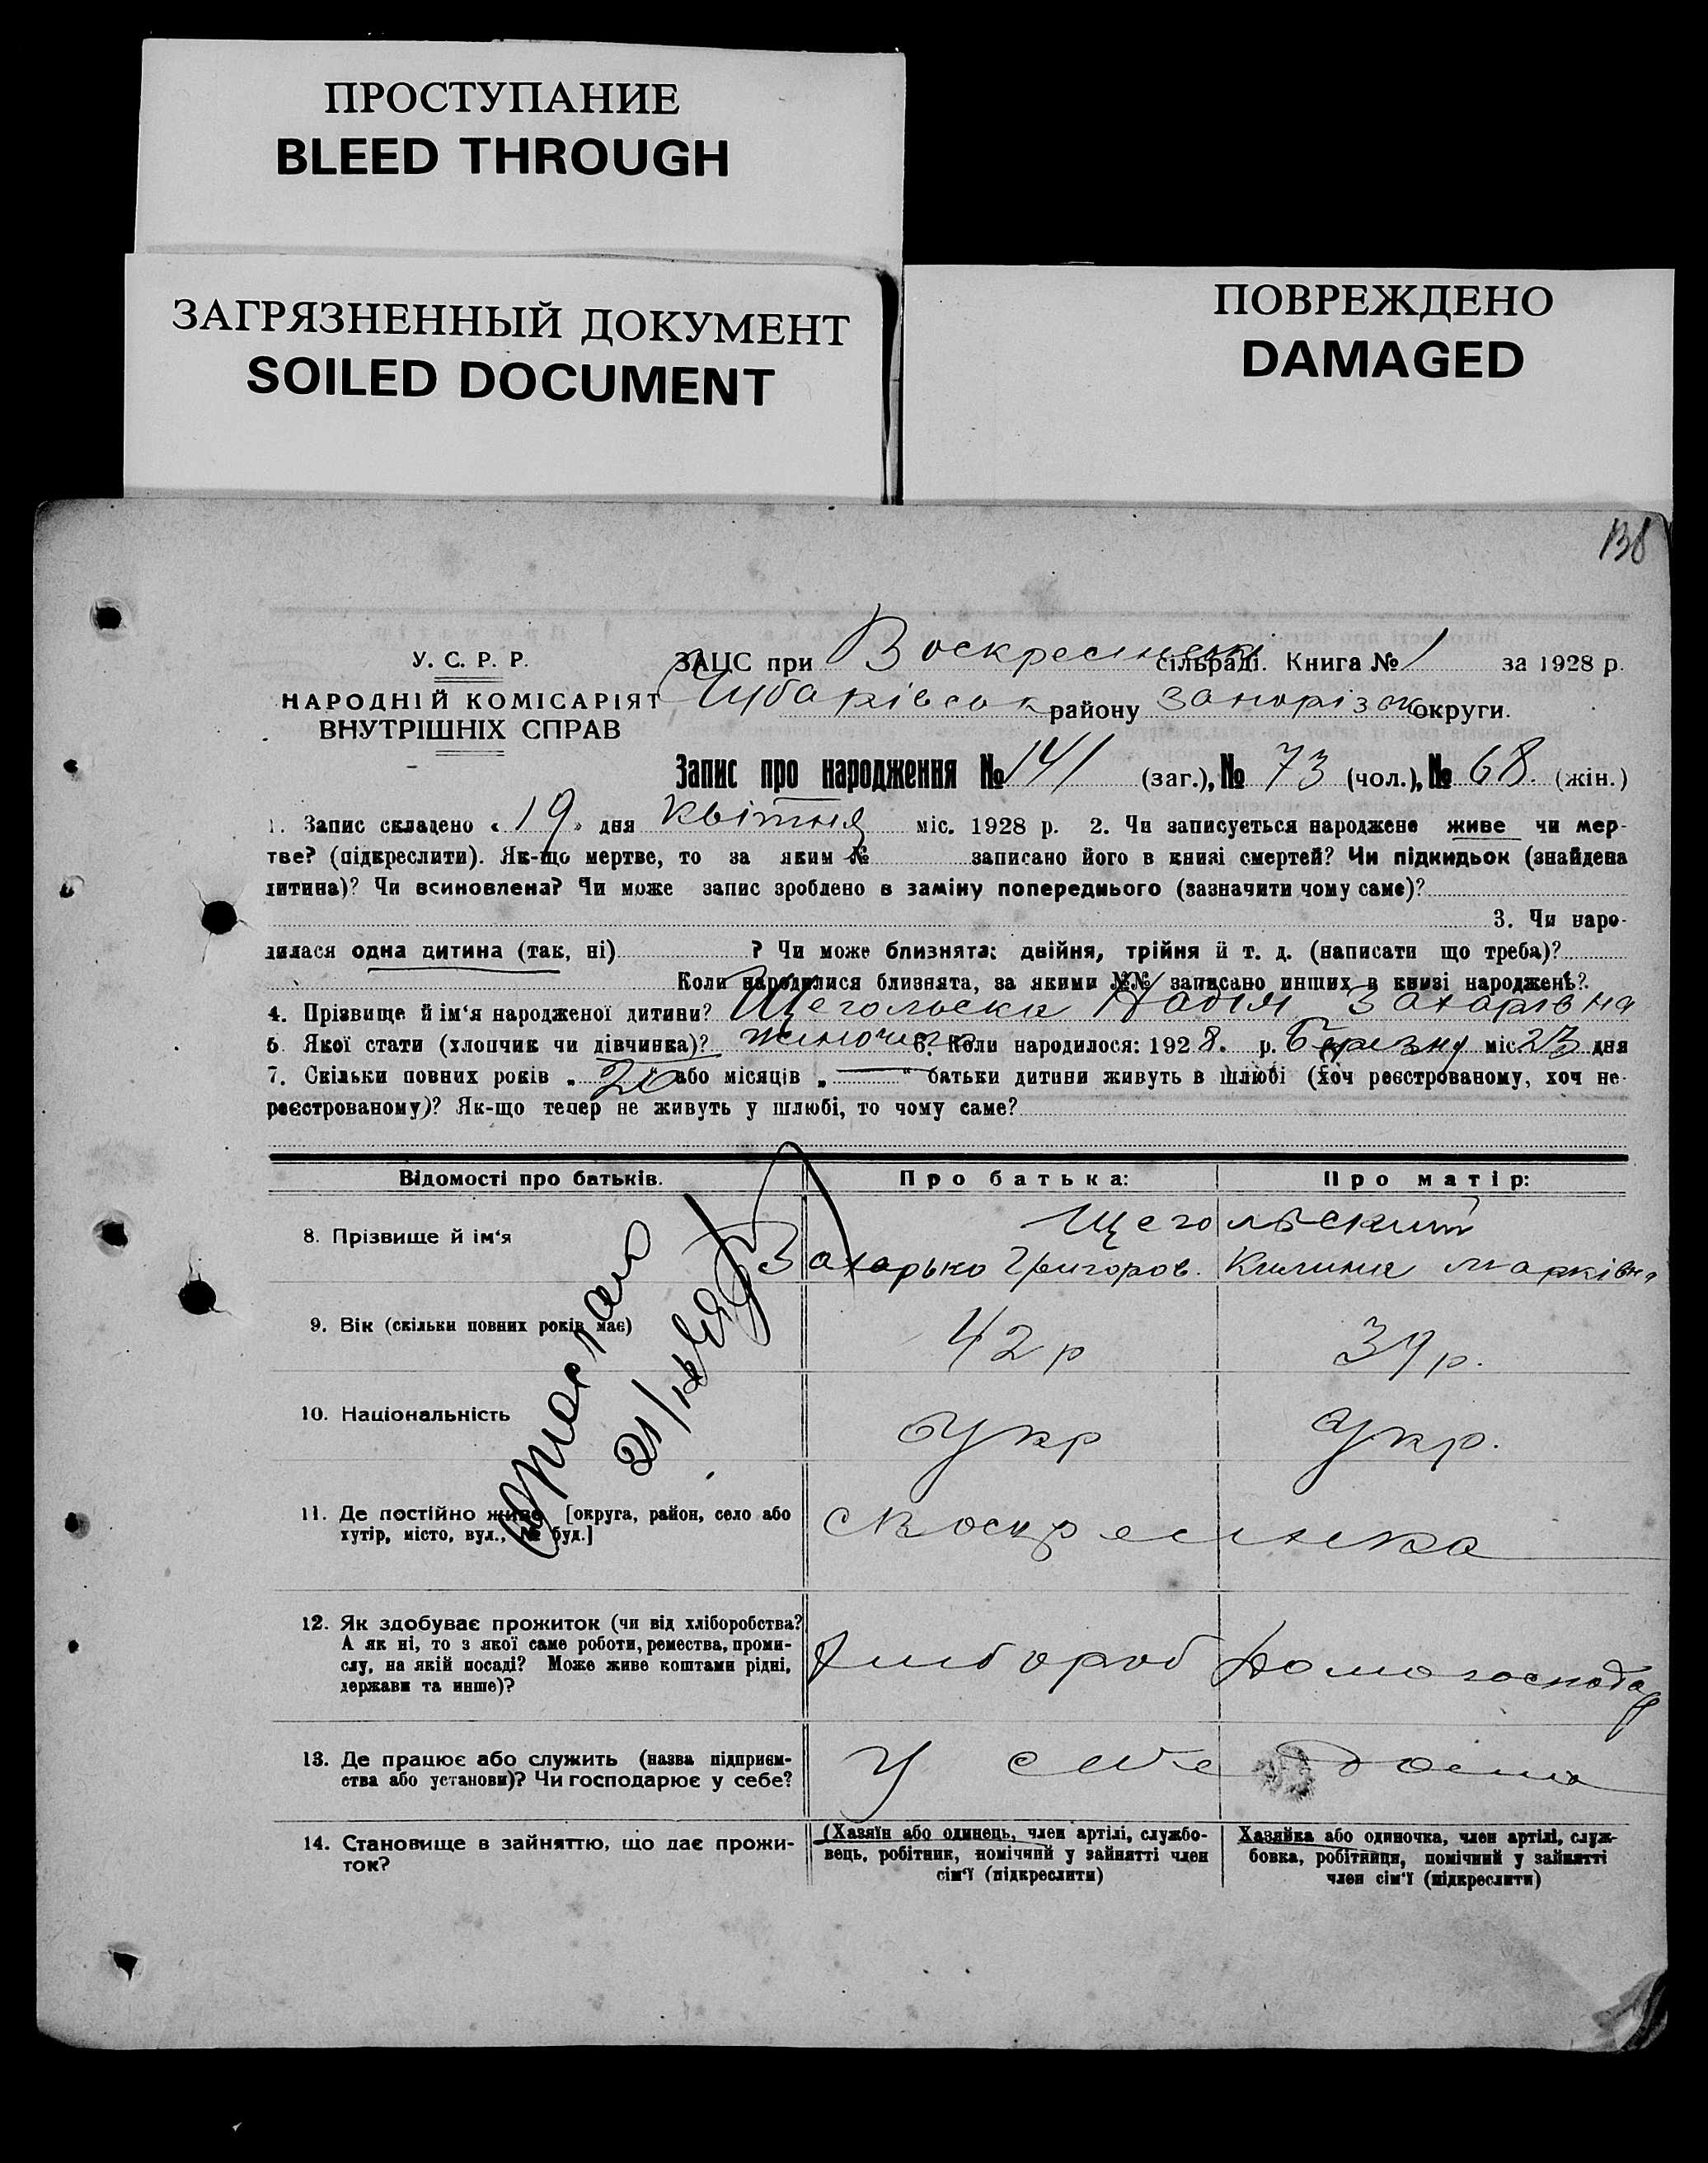 ПРОСТУПАНИЕ
BLEED THROUGH
ЗАГРЯЗНЕННЫЙ ДОКУМЕНТ
SOILED DOCUMENT
ПОВРЕЖДЕНО
DAMAGED
138
У. С. Р. Р.
НАРОДНІЙ КОМІСАРІЯТ
ВНУТРІШНІХ СПРАВ
ЗАЦС при Воскресенські сільраді. Книга № 1 за 1928 р.
Чубарівськ району Запорізк округи.
Запис про народження № 141 (заг.), № 73 (чол.), № 68. (жін.)
1. Запис складено « 19 » дня Квітня міс. 1928 р. 2. Чи записується народжене живе чи мер-
тве? (підкреслити). Як-що мертве, то за яким № записано його в книзі смертей? Чи підкидьок (знайдена
дитина)? Чи всиновлена? Чи може запис зроблено в заміну попереднього (зазначити чому саме)?
3. Чи наро-
дилася одна дитина (так, ні) ? Чи може близнята: двійня, трійня й т. д. (написати що треба)?
Коли народилися близнята, за якими №№ записано инших в книзі народжень?
4. Прізвище й ім'я народженої дитини? Щегольска Надія Захарівна
5. Якої статі (хлопчик чи дівчинка)? жіночого 6. Коли народилося: 1928. р. Березня міс 23 дня
7. Скільки повних років „ 20 “ або місяців „ — “ батьки дитини живуть в шлюбі (хоч реєстрованому, хоч не-
реєстрованому)? Як-що тепер не живуть у шлюбі, то чому саме?
Відомості про батьків.
Про батька:
Про матір:
8. Прізвище й ім'я
Щегольский
Захарько Григоров. Килина Марківна
9. Вік (скільки повних років має)
42 р
39 р.
10. Національність
Укр
Укр.
11. Де постійно живе [округа, район, село або
хутір, місто, вул., № буд.]
с Воскресенка
12. Як здобуває прожиток (чи від хліборобства?
А як ні, то з якої саме роботи, ремества, проми-
слу, на якій посаді? Може живе коштами рідні,
держави та инше)?
Хлібороб Домогосподар
13. Де працює або служить (назва підприєм-
ства або установи)? Чи господарює у себе?
У себе дома
14. Становище в зайняттю, що дає прожи-
ток?
(Хазяїн або одинець, член артілі, службо-
вець, робітник, помічний у зайнятті член
сім'ї (підкреслити)
Хазяйка або одиночка, член артілі, служ-
бовка, робітниця, помічний у зайнятті
член сім'ї (підкреслити)